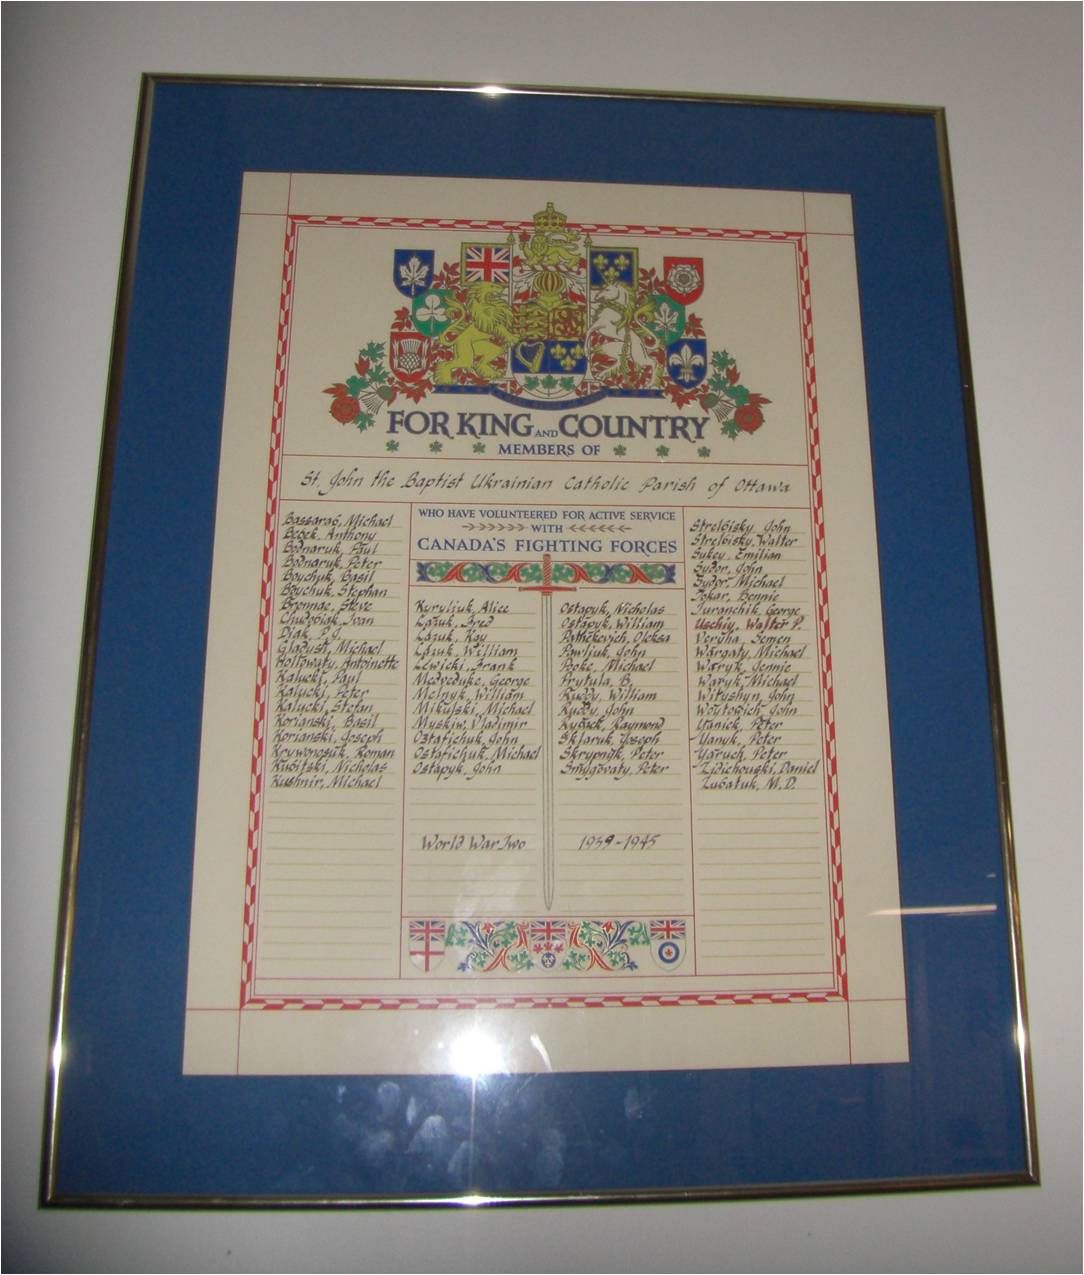 FOR KING AND COUNTRY
MEMBERS OF
St. John the Baptist Ukrainian Catholic Parish of Ottawa
WHO HAVE VOLUNTEERED FOR ACTIVE SERVICE
WITH
CANADA'S FIGHTING FORCES
Bassarab, Michael
Bebek, Anthony
Bodnaruk, Paul
Bodnaruk, Peter
Boychuk, Basil
Boychuk, Stephan
Brennae, Steve
Chudobiak, Ivan
Diak, P.G.
Gladysh, Michael
Hollowaty, Antoinette
Kalucki, Paul
Kalucki, Peter
Kalucki, Stefan
Korianski, Basil
Korianski, Joseph
Krywonosuk, Roman
Kubitski, Nicholas
Kushnir, Michael
Kyryljuk, Alice
Lazuk, Fred
Lazuk, Kay
Lazuk, William
Lewicki, Frank
Medveduke, George
Melnyk, William
Mikulski, Michael
Myskiw, Vladimir
Ostafichuk, John
Ostafichuk, Michael
Ostapyk, John
Ostapyk, Nicholas
Ostapyk, William
Pathekevich, Oleksa
Pawljuk, John
Poke, Michael
Prytula, B.
Ruddy, William
Ruddy, John
Raymond
Skjaruk, Joseph
Skrypnyk, Peter
Smygovaty, Peter
Strelbisky, John
Strelbisky, Walter
Sukey, Emilian
Sydor, John
Sydor, Michael
Tokar, Bennie
Turanchik, George
Uschiy, Walter P.
Veryha, Semen
Wargaty, Michael
Waryk, Jennie
Waryk, Michael
Wityshyn, John
Woytowich, John
Peter
Yanyk, Peter
Yaruch, Peter
Zidichouski, Daniel
Zubatuk, M.D.
World War Two 1939-1945